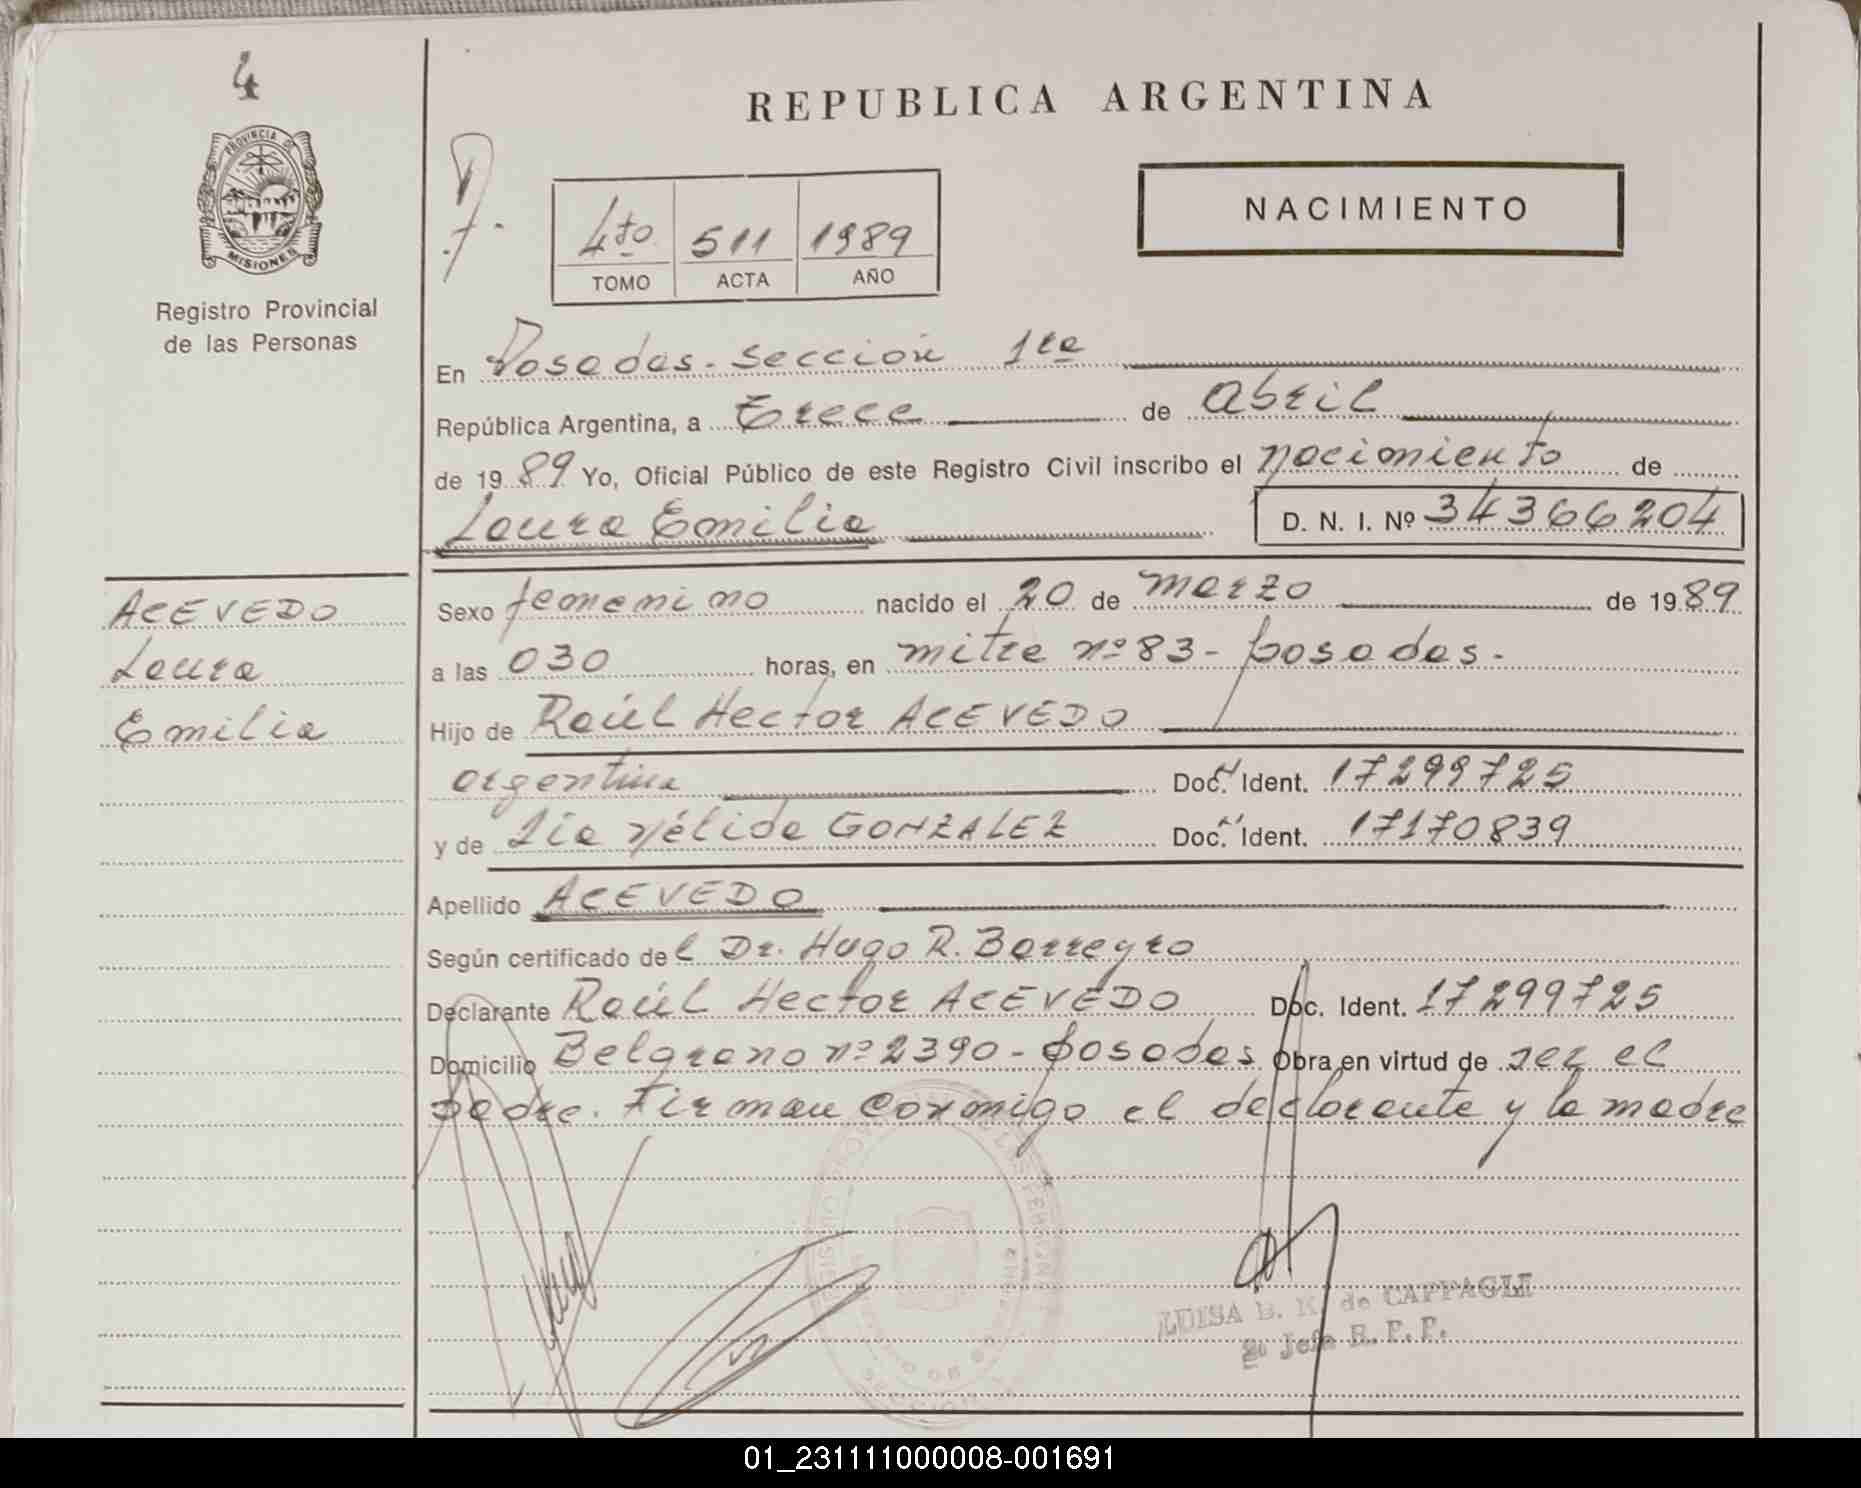 4
PROVINCIA DE
MISIONES
Registro Provincial
de las Personas
REPUBLICA ARGENTINA
NACIMIENTO
4to 511 1989
TOMO ACTA AÑO
En Posadas. sección 1ra
República Argentina, a trece de abril
de 1989 Yo, Oficial Público de este Registro Civil inscribo el nacimiento de
Laura Emilia D. N. I. Nº 34366204
ACEVEDO
Laura
Emilia
Sexo femenino nacido el 20 de marzo de 1989
a las 030 horas, en mitre nº 83 - posadas.
Hijo de Raúl Hector ACEVEDO
argentina Doc. Ident. 17299725
y de Lia Nélida GONZALEZ Doc. Ident. 17170839
Apellido ACEVEDO
Según certificado del Dr. Hugo R. Barreyro
Declarante Raúl Hector ACEVEDO Doc. Ident. 17299725
Domicilio Belgrano nº 2390 - posadas Obra en virtud de ser el
padre. Firman conmigo el declarante y la madre
LUISA B. K. de CAPPAGLI
2º Jefa R. P. P.
01_231111000008-001691